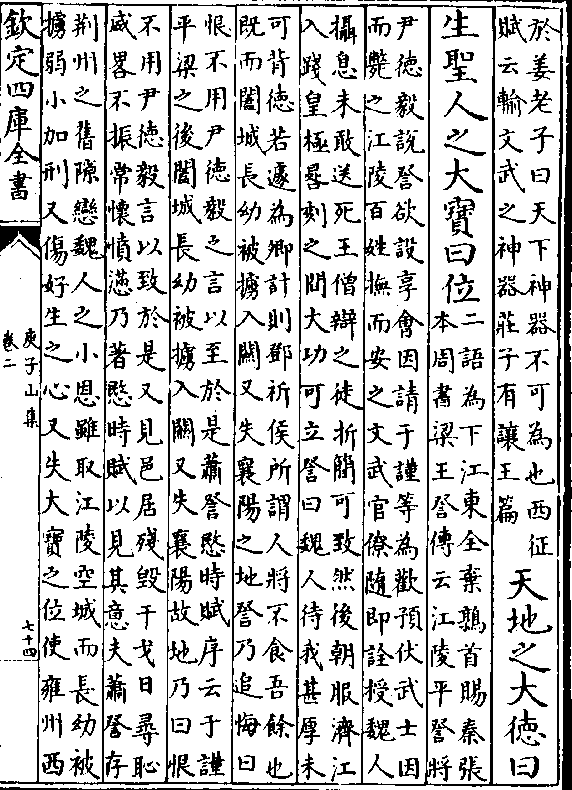 於姜老子曰天下神器不可為也西征
賦云輸文武之神器莊子有讓王篇
天地之大徳曰
生聖人之大寳曰位
二語為下江東全棄鶉首賜秦張
本周書梁王詧傳云江陵平詧將
尹德毅說詧欲設享會因請于謹等為歡預伏武士因
而斃之江陵百姓撫而安之文武官僚隨即詮授魏人
攝息未敢送死王僧辯之徒折簡可致然後朝服濟江
入踐皇極晷刻之間大功可立詧曰魏人待我甚厚未
可背德若遽為卿計則鄧祈侯所謂人將不食吾餘也
既而闔城長幼被擄入關又失襄陽之地詧乃追悔曰
恨不用尹德毅之言以至於是蕭詧愍時賦序云于謹
平梁之後闔城長幼被擄入關又失襄陽故地乃曰恨
不用尹德毅言以致於是又見邑居殘毀干戈日尋恥
威畧不振常懷憤懣乃著愍時賦以見其意夫蕭詧存
荆州之舊隙戀魏人之小恩雖取江陵空城而長幼被
擄弱小加刑又傷好生之心又失大寳之位使雍州西
欽定四庫全書
庾子山集
卷二
七十四